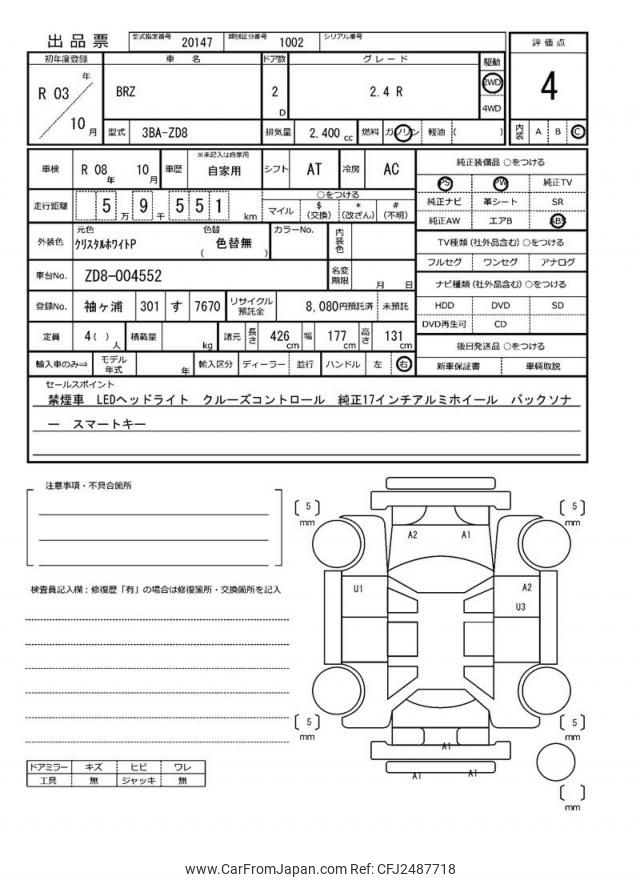 出品票
型式指定番号 20147 類別区分番号 1002 シリアル番号
初年度登録 車名 ドア数 グレード 駆動 評価点
R 03 年 10 月 BRZ 2 D 2.4 R 2WD 4WD 4
型式 3BA-ZD8 排気量 2,400 cc 燃料 ガソリン 軽油 ( ) 内装 A B C
車検 R 08 年 10 月 車歴 ※未記入は自家用 自家用 シフト AT 冷房 AC
純正装備品 ○をつける
PS PW 純正TV
走行距離 5 万 9 千 5 5 1 km ○をつける マイル $ (交換) * (改ざん) # (不明)
純正ナビ 革シート SR
純正AW エアB ABS
外装色 元色 クリスタルホワイトP 色替 ( 色替無 ) カラーNo. 内装色
TV種類 (社外品含む) ○をつける
フルセグ ワンセグ アナログ
車台No. ZD8-004552 名変期限 月 日
ナビ種類 (社外品含む) ○をつける
登録No. 袖ヶ浦 301 す 7670 リサイクル預託金 8,080円預託済 未預託
HDD DVD SD
DVD再生可 CD
定員 4( ) 人 積載量 kg 諸元 長さ 426 cm 幅 177 cm 高さ 131 cm
後日発送品 ○をつける
輸入車のみ⇒ モデル年式 年 輸入区分 ディーラー 並行 ハンドル 左 右
新車保証書 車輌取説
セールスポイント
禁煙車 LEDヘッドライト クルーズコントロール 純正17インチアルミホイール バックソナ
ー スマートキー
注意事項・不具合箇所
検査員記入欄：修復歴「有」の場合は修復箇所・交換箇所を記入
5 mm
5 mm
A2 A1
U1 A2
U3
5 mm
5 mm
A1
A1 A1
mm
ドアミラー キズ ヒビ ワレ
工具 無 ジャッキ 無
www.CarFromJapan.com Ref: CFJ2487718